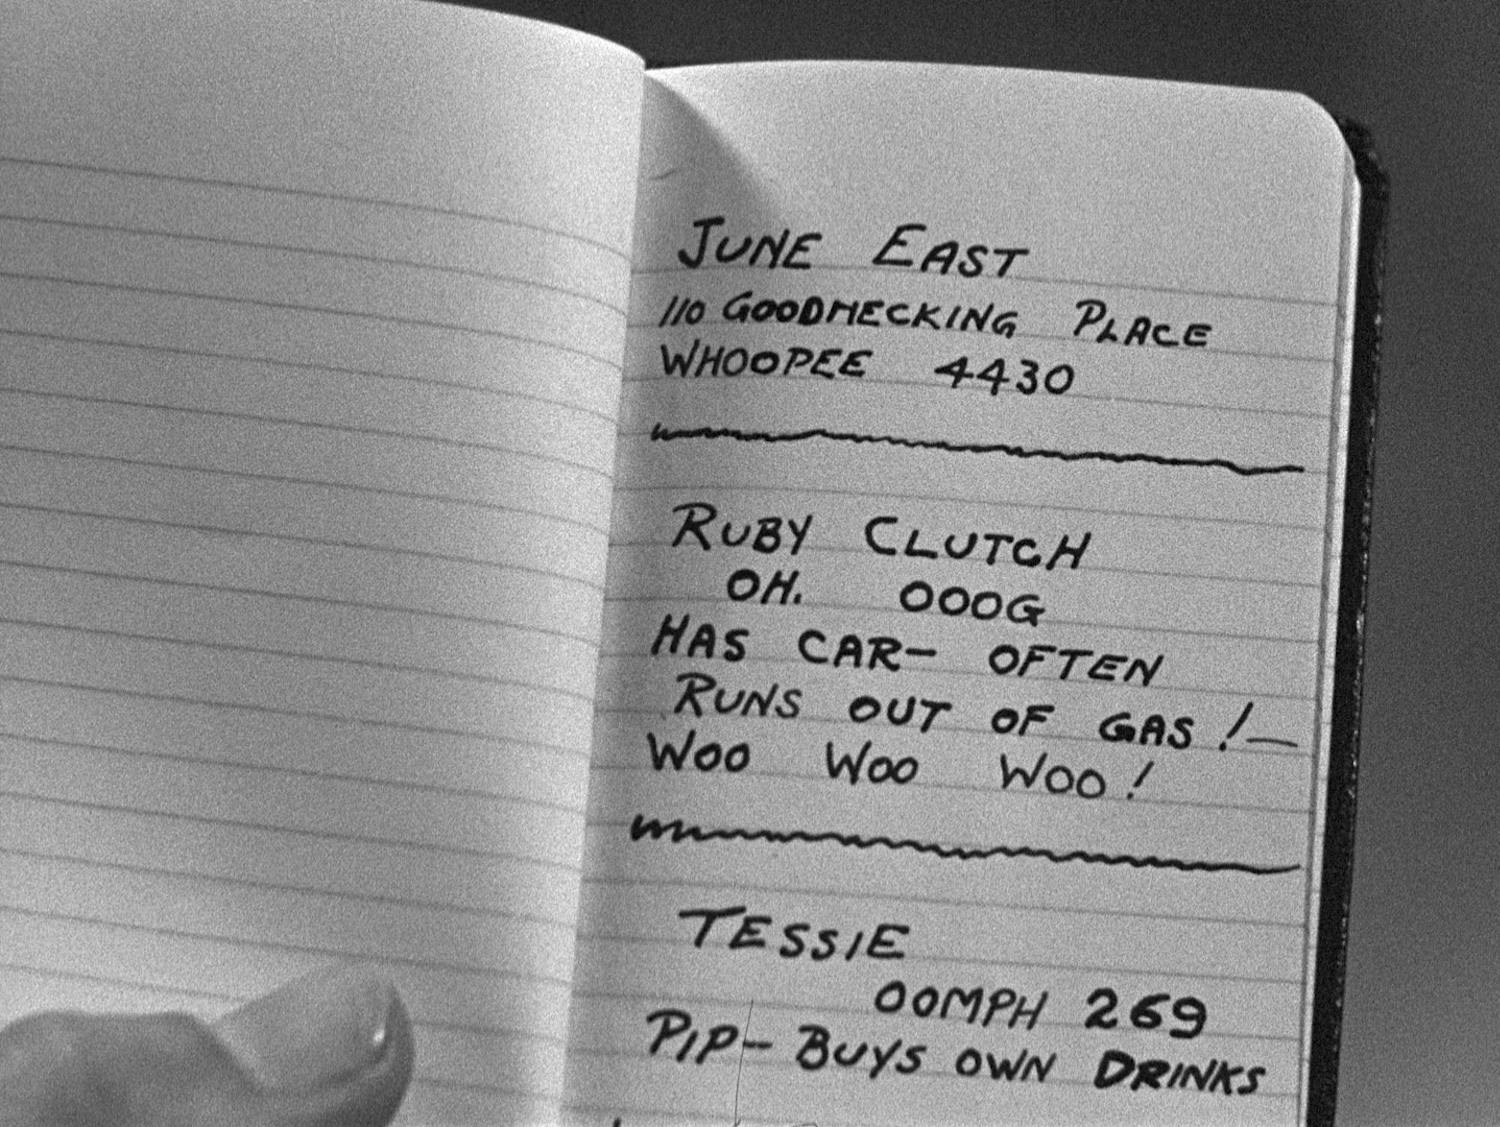 JUNE EAST
110 GOODNECKING PLACE
WHOOPEE 4430
RUBY CLUTCH
OH. OOOG
HAS CAR- OFTEN
RUNS OUT OF GAS!-
WOO WOO WOO!
TESSIE
OOMPH 269
PIP- BUYS OWN DRINKS